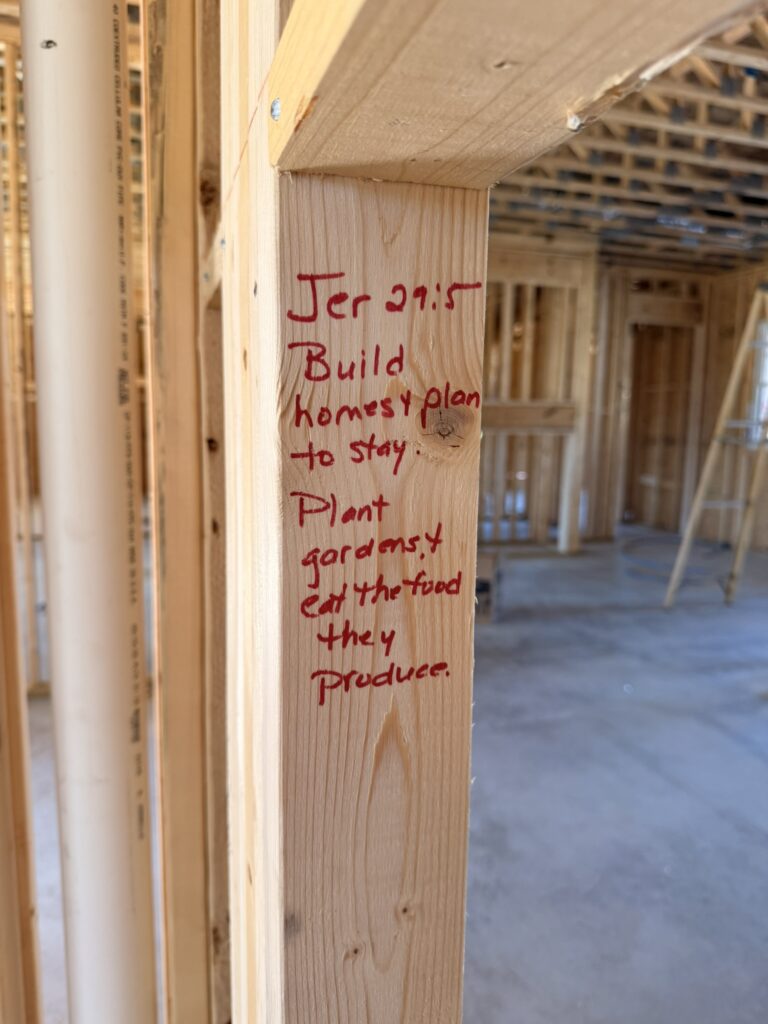 Jer 29:5
Build
homes & plan
to stay.
Plant
gardens, &
eat the food
they
produce.